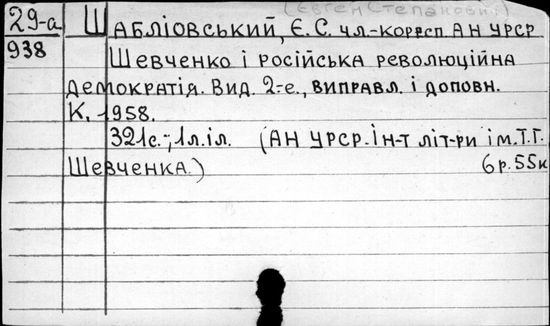 (Євген Степанович)
29-а Шабліовський, Є. С. чл.-корресп АН УРСР
938 Шевченко і російська революційна
демократія. Вид. 2-е., виправл. і доповн.
К., 1958.
321с.; 1л.іл. (АН УРСР. Ін-т літ-ри ім. Т. Г.
Шевченка.) 6р. 55к